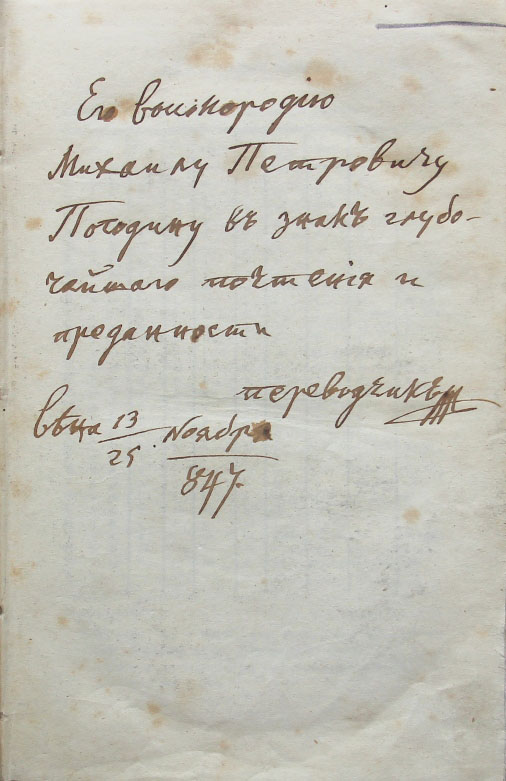 Его высокородію
Михаилу Петровичу
Погодину въ знакъ глубо-
чайшаго почтенія и
преданности
переводчикъ
Вѣна 13/25 Ноября
847.